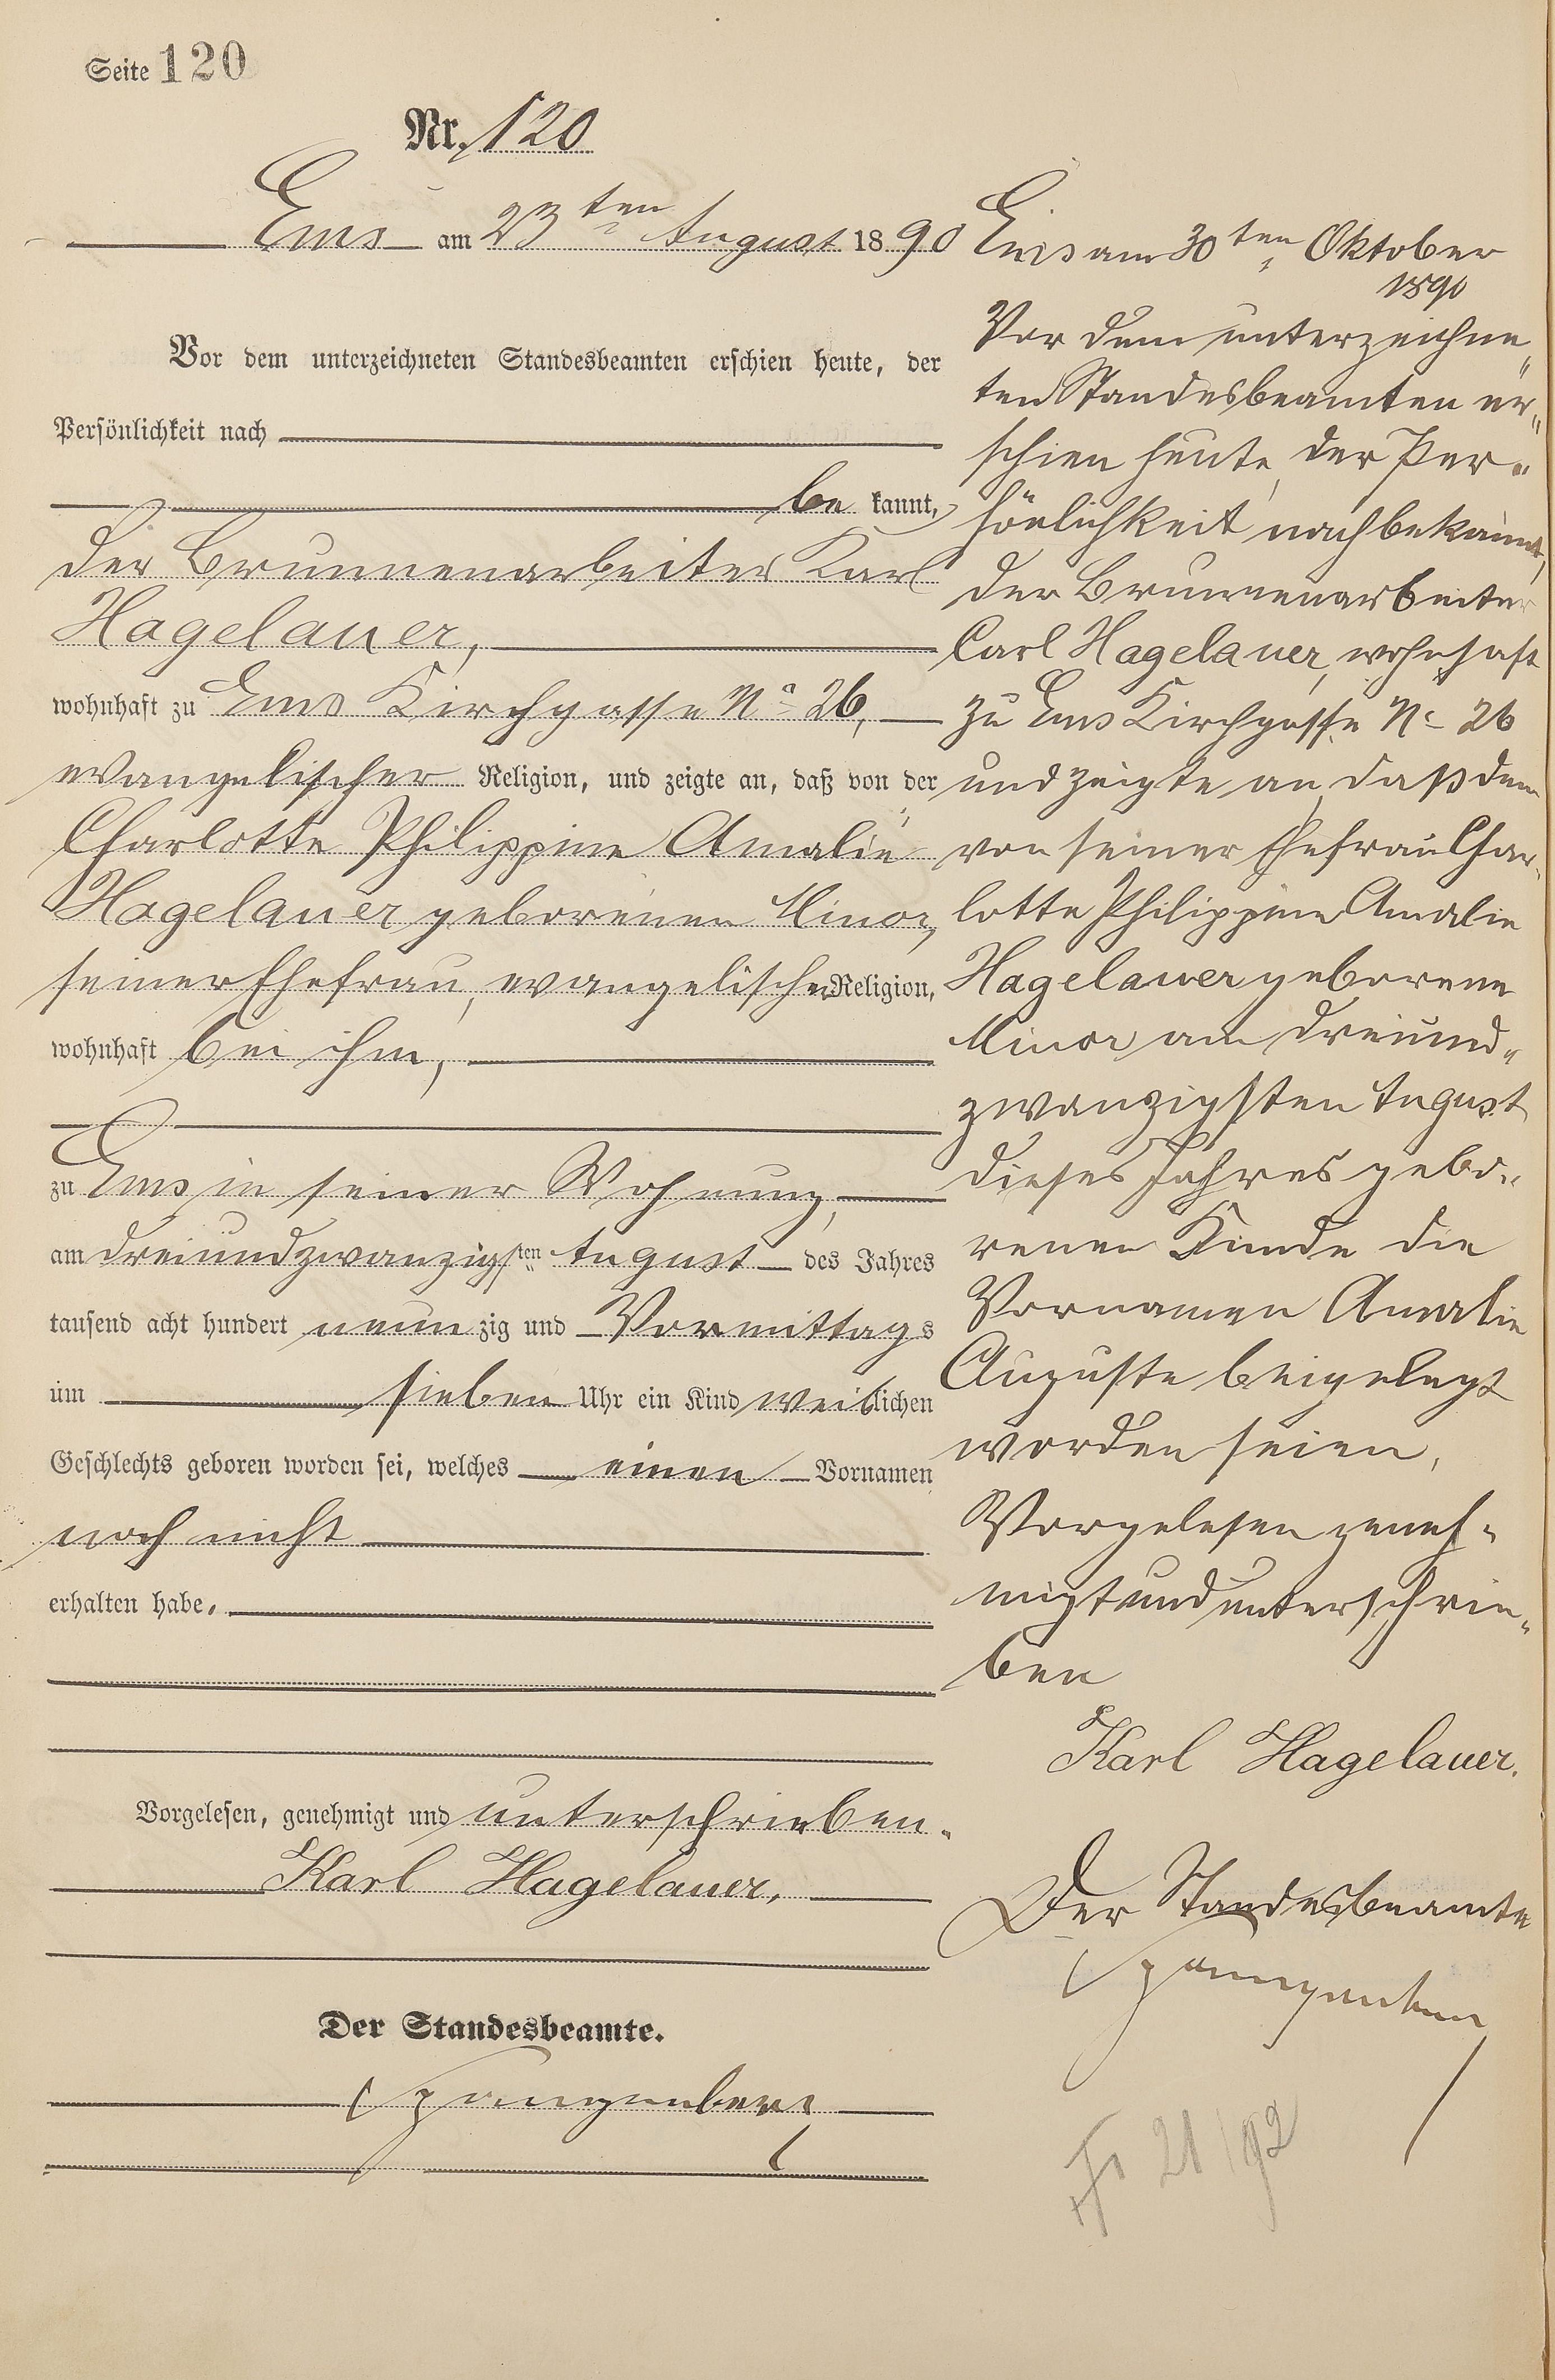 Seite 120
Nr. 120
Ems am 23ten August 1890
Vor dem unterzeichneten Standesbeamten erschien heute, der
Persönlichkeit nach
be kannt,
der Brunnenarbeiter Karl
Hagelauer,
wohnhaft zu Ems Kirchgasse No 26,
evangelischer Religion, und zeigte an, daß von der
Charlotte Philippine Amalie
Hagelauer geborenen Minor,
seiner Ehefrau, evangelischer Religion,
wohnhaft bei ihm,
zu Ems in seiner Wohnung,
am dreiundzwanzigsten August des Jahres
tausend acht hundert neunzig und Vormittags
um sieben Uhr ein Kind weiblichen
Geschlechts geboren worden sei, welches einen Vornamen
noch nicht
erhalten habe.
Vorgelesen, genehmigt und unterschrieben.
Karl Hagelauer.
Der Standesbeamte.
Spangenberg
Ems am 30ten Oktober
1890
Vor dem unterzeichne„
ten Standesbeamten er„
schien heute, der Per„
sönlichkeit nach bekannt,
der Brunnenarbeiter
Carl Hagelauer, wohnhaft
zu Ems Kirchgasse No 26
und zeigte an, daß dem
von seiner Ehefrau Char„
lotte Philippine Amalie
Hagelauer geborene
Minor am dreiund„
zwanzigsten August
dieses Jahres gebo„
renen Kinde die
Vornamen Amalie
Auguste beigelegt
worden seien.
Vorgelesen geneh„
migt und unterschrie„
ben
Karl Hagelauer.
Der Standesbeamte
Spangenberg
21/92